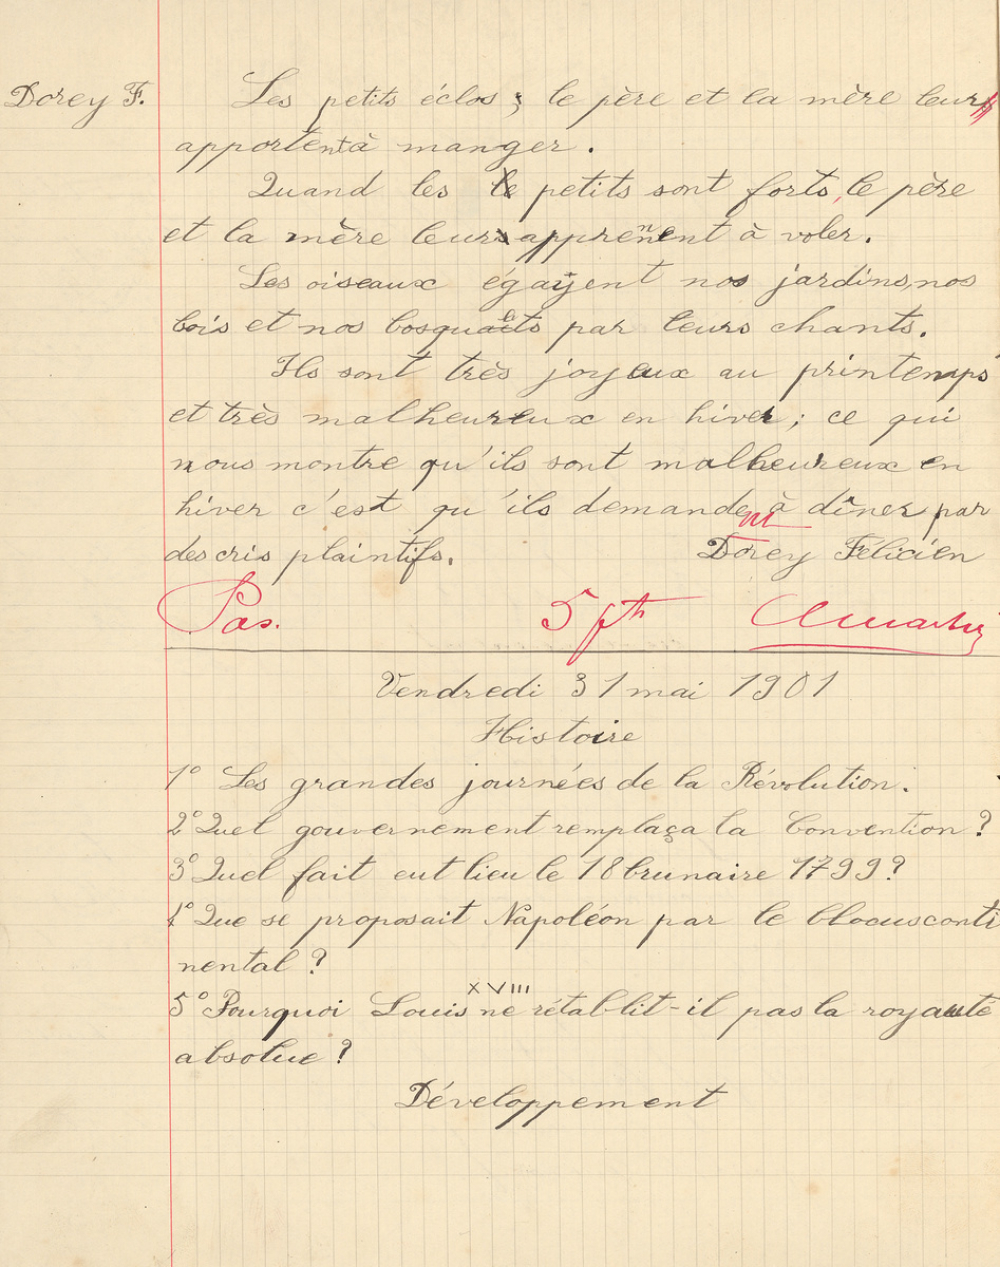 Dorey F.
Les petits éclos ; le père et la mère leurs
apportent à manger.
Quand les le petits sont forts, le père
et la mère leurs apprennent à voler.
Les oiseaux égayent nos jardins, nos
bois et nos bosquets par leurs chants.
Ils sont très joyeux au printemps
et très malheureux en hiver ; ce qui
nous montre qu'ils sont malheureux en
hiver c'est qu'ils demande à dîner par
nt
des cris plaintifs.
Dorey Félicien
Pas.
5 pts
Vendredi 31 mai 1901
Histoire
1° Les grandes journées de la Révolution.
2° Quel gouvernement remplaça la Convention ?
3° Quel fait eut lieu le 18 brunaire 1799 ?
4° Que se proposait Napoléon par le blocus conti
nental ?
5° Pourquoi Louis XVIII ne rétablit-il pas la royauté
absolue ?
Développement